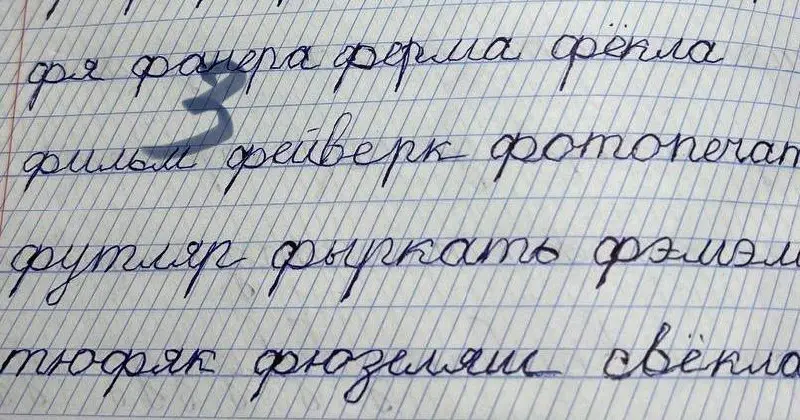 фя фанера ферма фёкла
3
фильм фейверк фотопечат
футляр фыркать фэмэл
тюфяк фюзеляш свёкла